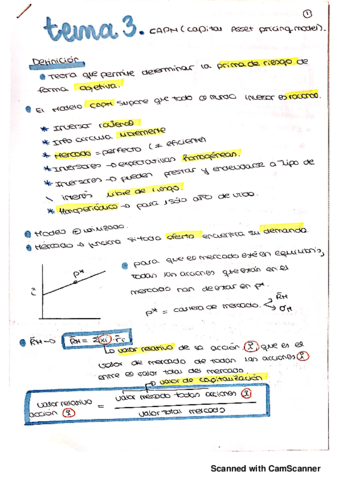 1
tema 3. CAPM (capital Asset pricing model).
Definición
Teoría que permite determinar la prima de riesgo de
forma objetiva.
El Modelo CAPM supone que todo el mundo inversor es racional.
* Inversor racional
* Info circula libremente
* Mercado = perfecto (≠ eficiente)
* Inversores → expectativas homogéneas.
* Inversores → pueden prestar y endeudarse a tipo de
interés libre de riesgo
* Monoperiódico → para 1 sólo año de vida.
Modelo
Mercado → funciona si toda oferta encuentra su demanda
para que el mercado esté en equilibrio,
todas las acciones que están en el
mercado han de estar en P*.
P*
P* = cartera de mercado.
R̄M
σM
R̄M → R̄M = Σ(xi) · r̄i
La valor relativo de la acción i, que es el
valor de mercado de todas las acciones i
entre el valor total del mercado
valor de capitalización
valor relativo acción i = valor mercado todas acciones i
valor total mercado
Scanned with CamScanner